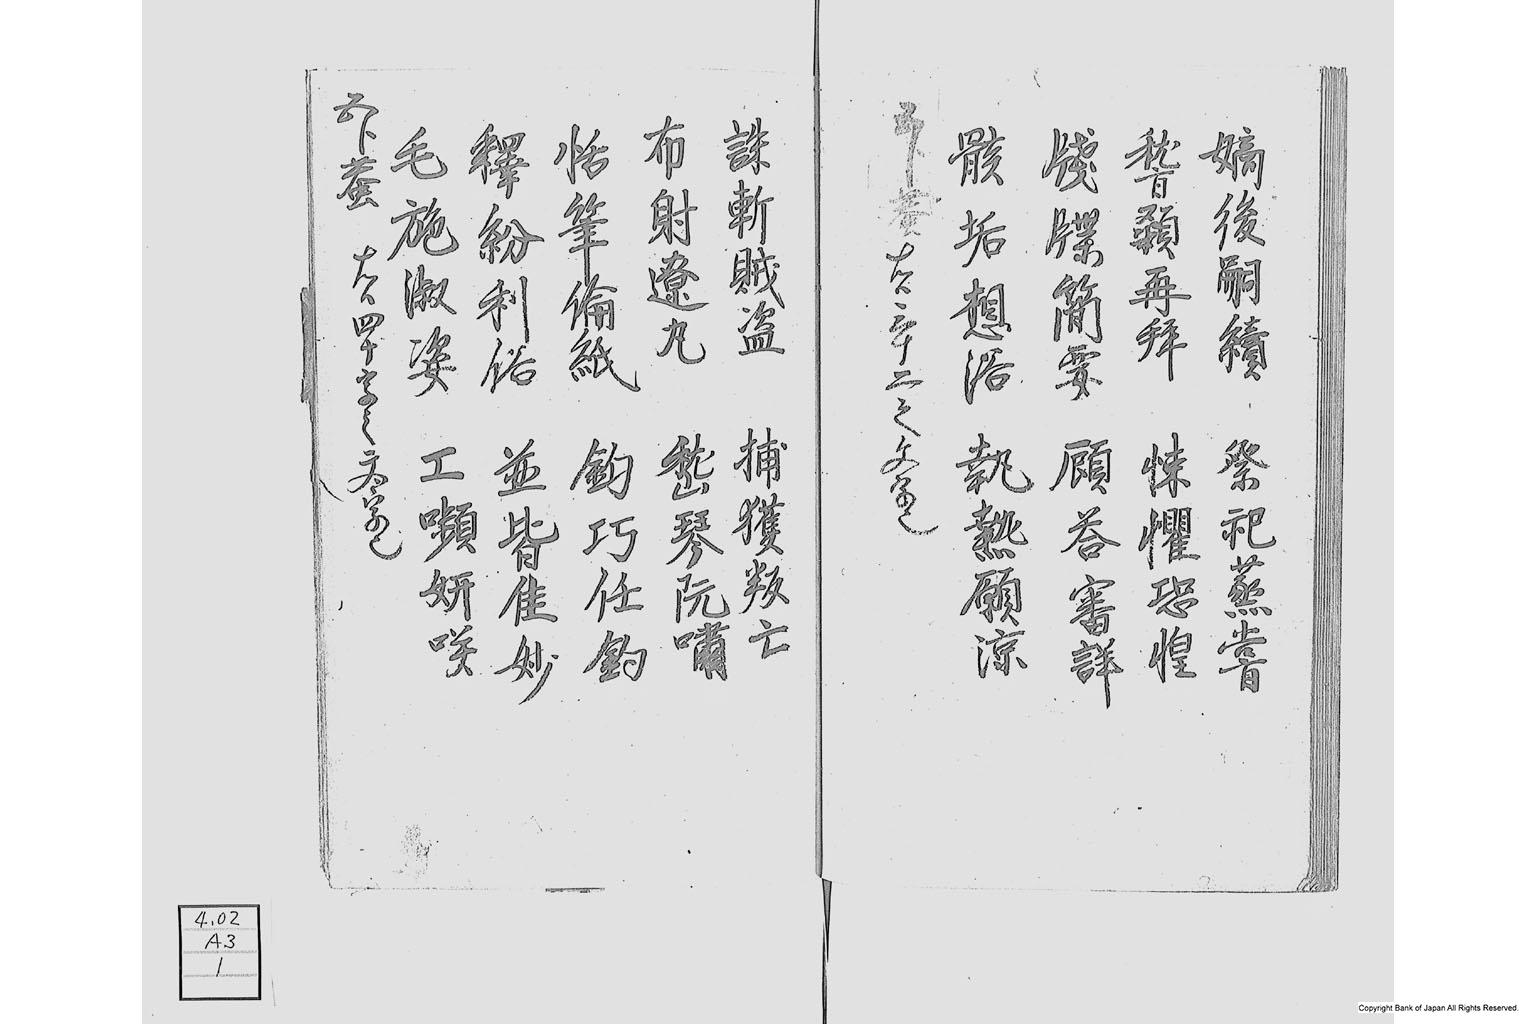 嫡後嗣續 祭祀蒸嘗
稽顙再拜 悚懼恐惶
牋牒簡要 顧答審詳
骸垢想浴 執熱願涼
誅斬賊盜 捕獲叛亡
布射遼丸 嵇琴阮嘯
恬筆倫紙 鈞巧任釣
釋紛利俗 並皆佳妙
毛施淑姿 工嚬妍咲
四十字之
4.02
A3
1
Copyright Bank of Japan All Rights Reserved.